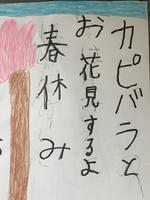 カピバラと
お花見するよ
春休み